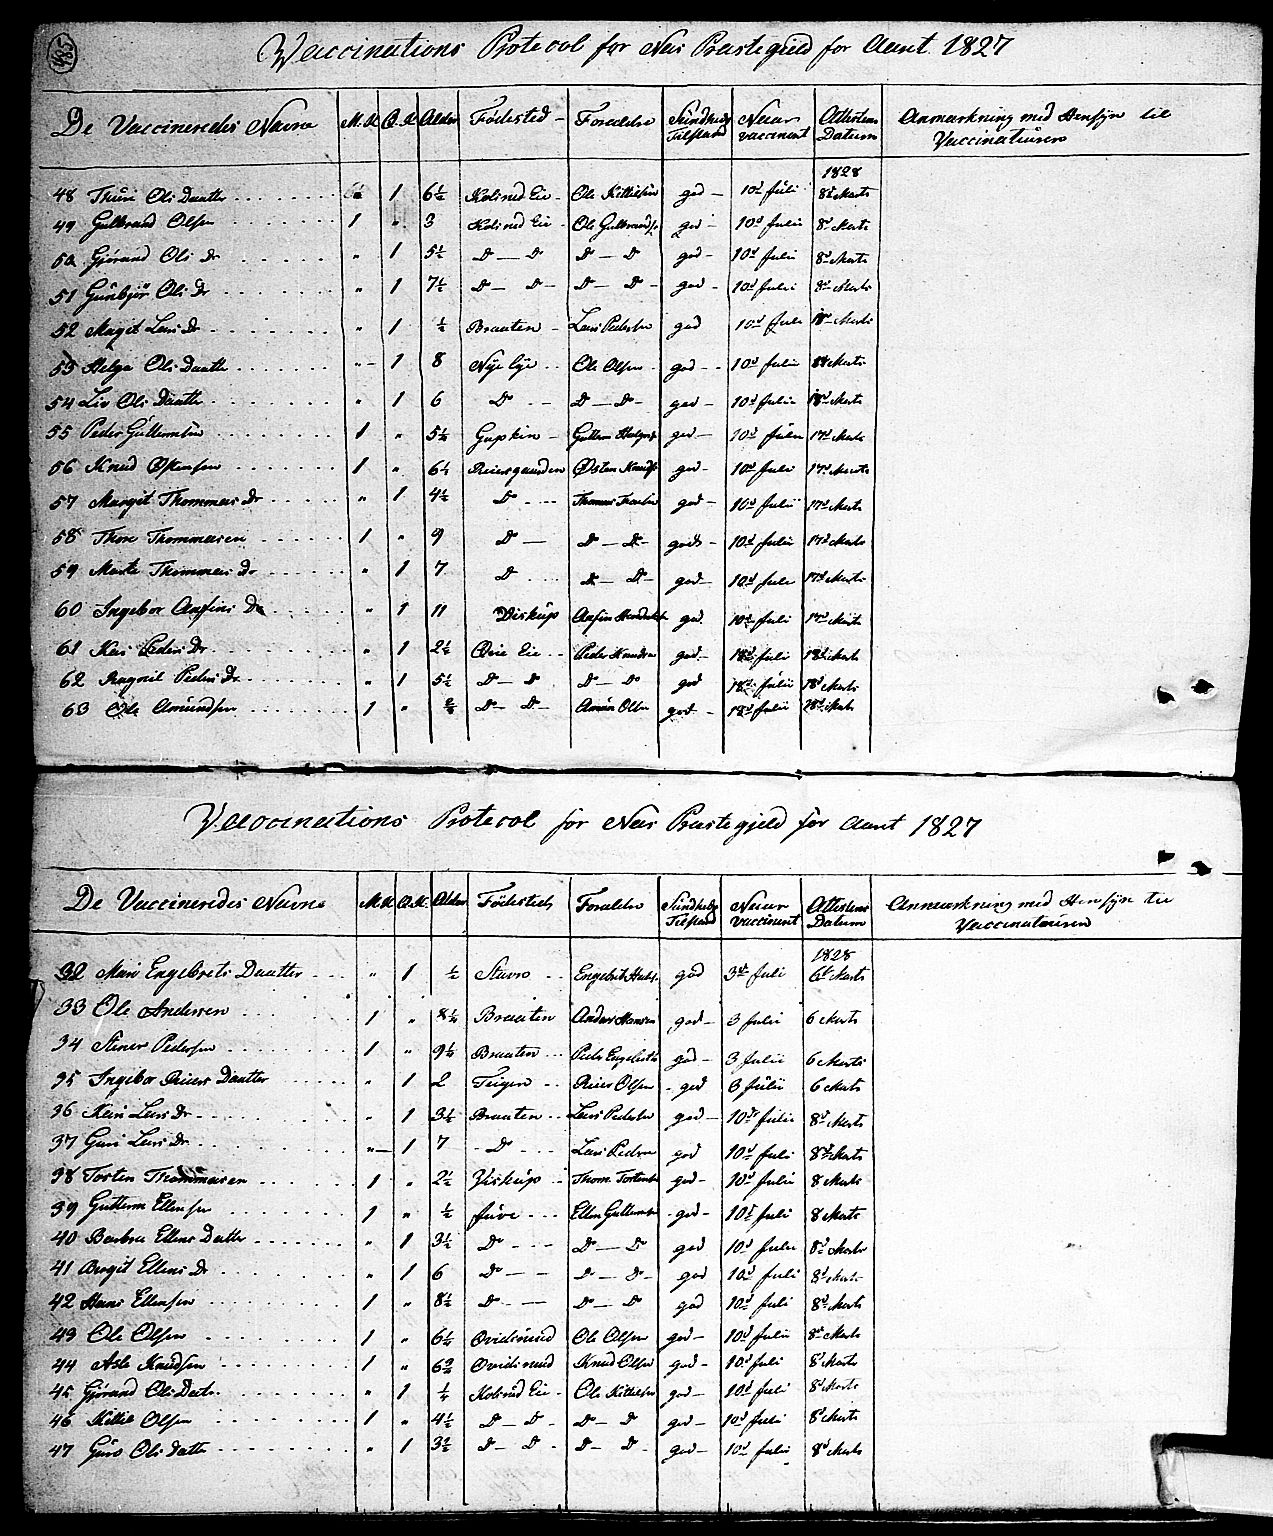 185
Vaccinations Protocol for Næs Præstegield for Aaret 1827
De Vaccineredes Navne M.K. Q.K. Alder Fødested Forældre Sundheds Tilstand Naar vaccineret Attestens Datum Anmærkning med Hensyn til Vaccinationen
1828
48 Thuri Ols Daatter 1 6½ Kolsrud Eie Ole Kittilsen god 10d Julii 8d Marts
49 Gulbrand Olsen 1 " 3 Kolsrud Eie Ole Gulbrands. god 10d Julii 8d Marts
50 Gjørand Ols Dr " 1 5½ Do Do god 10d Julii 8d Marts
51 Gunbjør Ols Dr " 1 7½ Do Do god 10d Julii 8d Marts
52 Margit Lars Dr " 1 ½ Braaten Lars Pedersen god 10d Juli 18d Marts
53 Helga Ols Daatter " 1 8 Nye Ole Olsen god 10d Julii 18d Marts
54 Liv Ols Daatter " 1 6 Do Do god 10d Julii 18d Marts
55 Peder Guttormsen 1 " 5½ Guttorm god 10d Julii 17d Marts
56 Knud Østensen 1 " 6½ Reiersgaarden Østen Knuds. god 10d Julii 17d Marts
57 Margit Thommas Dr " 1 4½ Do god 10d Julii 17d Marts
58 Thore Thommasen 1 " 9 Do Do god 10d Julii 17d Marts
59 Marte Thommas Dr " 1 7 Do Do god 10d Juli 17d Marts
60 Ingebor Anfins Dr " 1 11 Diskup Anfin god 10d Juli 17d Marts
61 Kari Peders Dr " 1 2½ Eie Peder Knudsen god 18d Julii 18d Marts
62 Ragnil Peders Dr " 1 5½ Do Do god 18d Julii 18d Marts
63 Ole Amundsen 1 " Do Amun Olsen god 18d Julii 18d Marts
Vaccinations Protocol for Næs Præstegjeld for Aaret 1827
De Vaccineredes Navne M.K. Q.K. Alder Fødested Forældre Sundheds Tilstand Naar vaccineret Attestens Datum Anmærkning med Hensyn til Vaccinationen
1828
32 Mari Engebrets Daatter " 1 ½ Stavro Engebrit god 3d Juli 6d Marts
33 Ole Andersen 1 " 8½ Braaten Anders Hansen god 3 Julii 6 Marts
34 Stener Pedersen 1 " 9½ Braaten Peder god 3 Julii 6 Marts
35 Ingebor Reiers Daatter " 1 2 Teigen Reier Olsen god 3 Julii 6 Marts
36 Kari Lars Dr " 1 3½ Braaten Lars Pedersen god 10d Julii 8d Marts
37 Guri Lars Dr " 1 7 Do Lars Pedersen god 10d Juli 8d Marts
38 Torsten Thommasen 1 " 2½ Viskup Thom. Torstens. god 10d Juli 8 Marts
39 Guttorm Ellensen 1 " ½ Juve Ellen Guttorms. god 10d Juli 8 Marts
40 Barbra Ellens Datter " 1 3½ Do Do god 10d Julii 8d Marts
41 Birgit Ellens Dr " 1 6 Do Do god 10d Juli 8d Marts
42 Hans Ellensen 1 " 8½ Do Do god 10d Juli 8d Marts
43 Ole Olsen 1 " 6½ Qvidsrud Ole Olsen god 10d Julii 8d Marts
44 Asle Knudsen 1 " Qvidsrud Knud Olsen god 10d Juli 8d Marts
45 Gjørand Ols Dattr " 1 Kolsrud Eie Ole Kittilsen god 10d Juli 8d Marts
46 Kittil Olsen 1 " 4½ Do Do god 10d Juli 8d Marts
47 Guro Ols Datter " 1 Do Do god 10d Julii 8d Marts